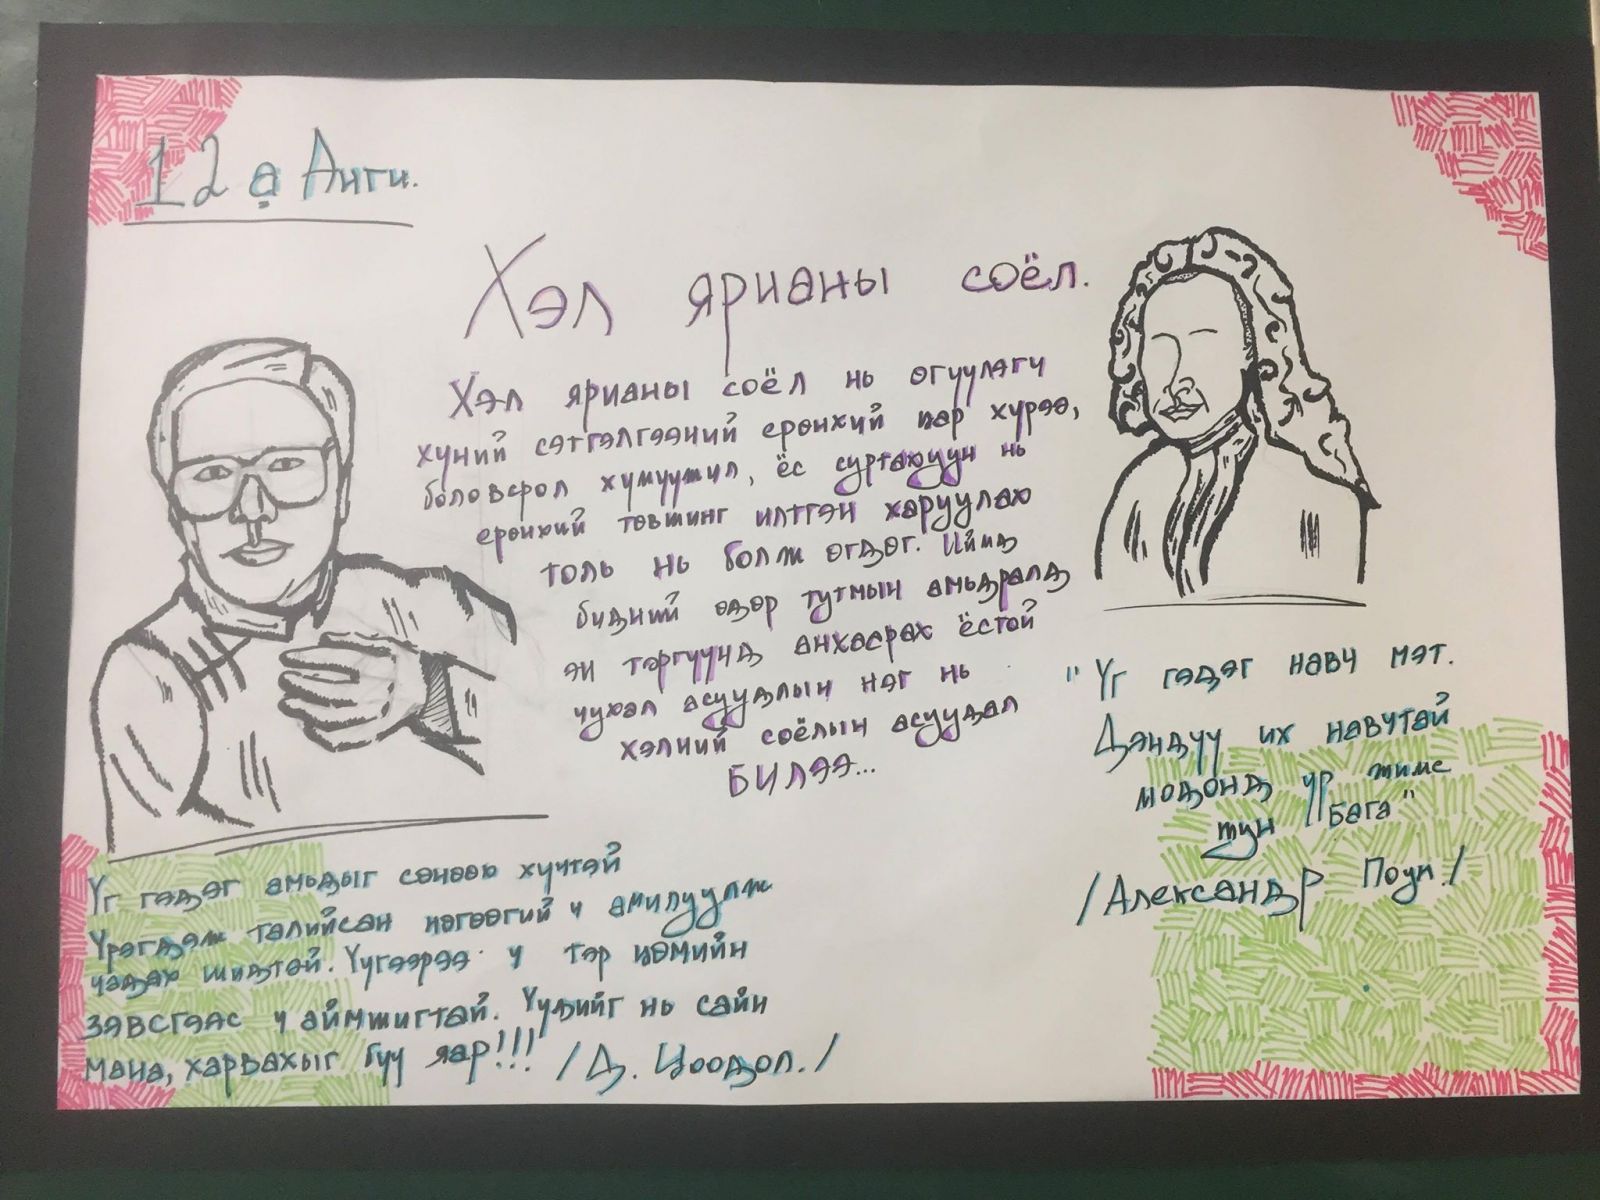 12а Анги.
Хэл ярианы соёл.
Хэл ярианы соёл нь өгүүлэгч
хүний сэтгэлгээний ерөнхий цар хүрээ,
боловсрол хүмүүжил, ёс суртахуун нь
ерөнхий төвшинг илтгэн харуулах
толь нь болж өгдөг. Иймд
бидний өдөр тутмын амьдралд
эн тэргүүнд анхаарах ёстой
чухал асуудлын нэг нь
хэлний соёлын асуудал
БИЛЭЭ...
"Үг гэдэг навч мэт.
Дэндүү их навчтай
модонд үр жимс
тун бага"
/Александр Поуп./
Үг гэдэг амьдыг сөнөөх хүчтэй
Үрэгдэж талийсан нөгөөгий ч амилуулж
чадах шидтэй. Үүгээрээ ч тэр цөмийн
зэвсгээс ч аймшигтай. Үүдийг нь сайн
мана, харвахыг бүү яар!!! /Д. Цоодол./